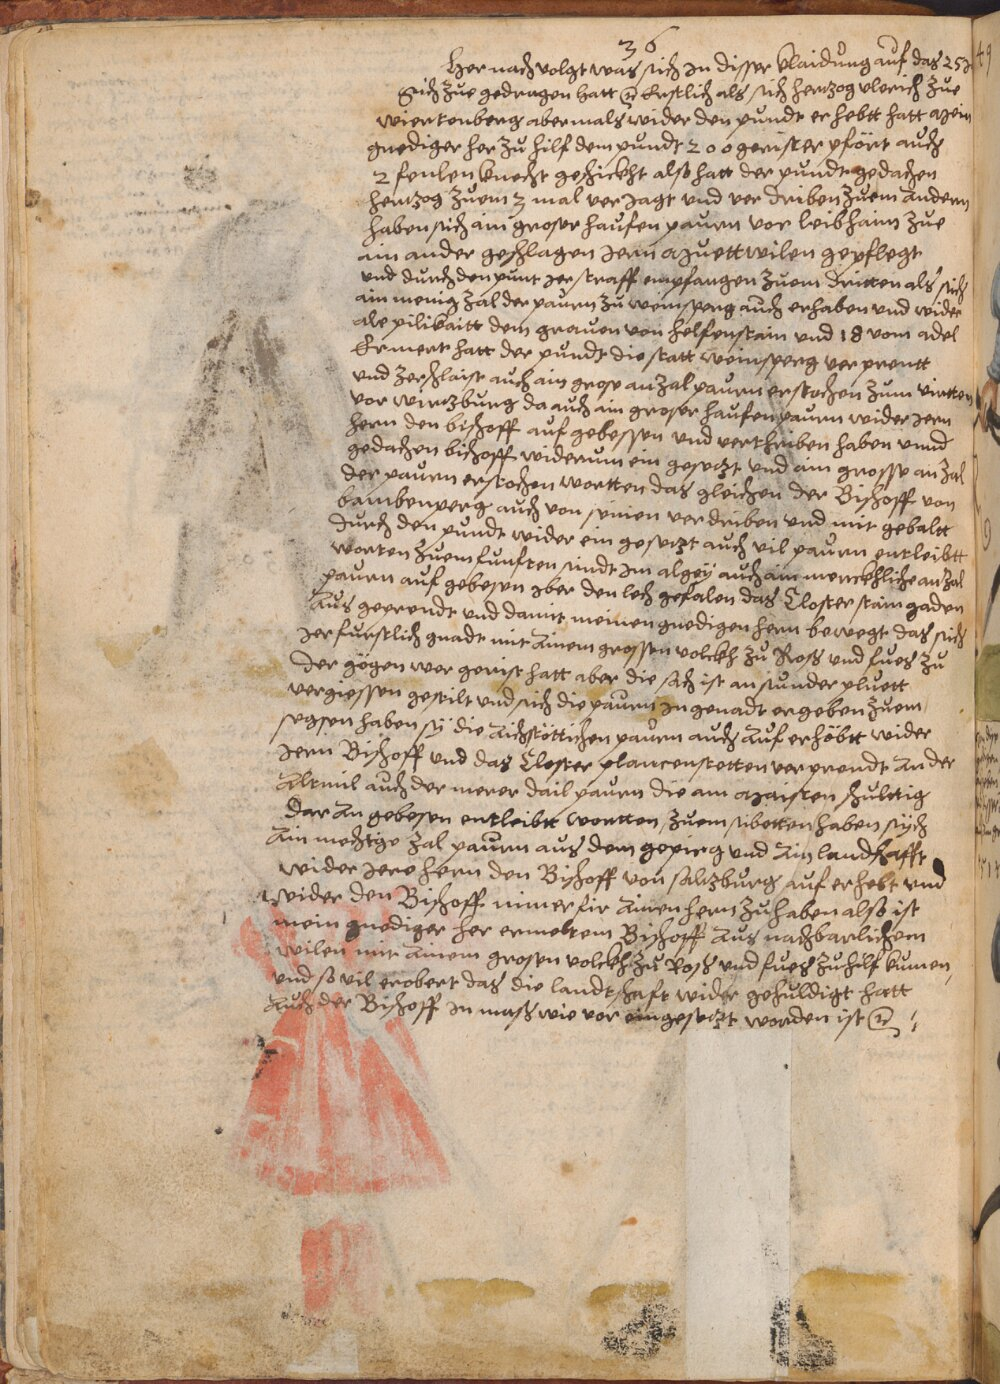 36
Her nach volgt was sich in disser klaidung auf das 25 J
Sich zue gedragen hatt Erstlich als sich hertzog vlerich zue
wiertenberg abermals wider den pundt er hebtt hatt mein
gnediger her zu hilf dem pundt 200 gerister pfört auch
2 fenlen knecht geschickht also hatt der pundt gedachen
hertzog zuem 3 mal ver Jagt und ver driben zuem Andern
haben sich ain groser haufen paurn vor leibhaim zue
ain ander geschlagen Jern muettwilen gepflegt
und durch den punt Jer straff empfangen zuem dritten als sich
ain menig zal der paurn zu weinsperg auch erhaben und wider
ale pilikaitt dem grauen von helfenstain und 18 vom adel
Ermert hatt der pundt die statt weinsperg ver prentt
und zerschlaist auch ain gros anzal paurn erstochen zum viertten
vor wirtzburg da auch ain groser haufen paurn wider Jern
hern den bischoff auf gebessen und verthriben haben unnd
gedachen bischoff widerum ein gesetzt und ain grosse anzal
der paurn erstochen wortten das gleichen der Bischoff von
bambenperg auch von seinen ver driben und mit gebaltt
durch den pundt wider ein gesetzt auch vil paurn entleibtt
worten zuem funften sindt im algey auch ain merckhliche anzal
paurn auf gebesen yber den lech gefalen das Closter staingaden
Aus geerendt und damit meinen gnedigen hern bewegt das sich
Jer furstlich gnadt mit Ainem grossen volckh zu Ross und fues zu
der gögen wer gerist hatt aber die sach ist an sunder pluett
vergiessen gestilt und sich die paurn in genadt ergeben zuem
segsen haben sy die Aichstöttischen paurn auch Auf erhöbtt wider
Jern Bischoff und das Closter plancenstetten verprendt An der
Altmil auch der merer dail paurn die am maisten schulttig
dar An gebesen entleibtt wortten zuem sibetten haben sych
Ain mechtge zal paurn aus dem gepirg und Ain landschafft
wider Jere hern den Bischoff von salzburg auf erhebt und
wider den Bischoff nimer fir Ainen hern zu haben also ist
mein gnediger her ermeltem Bischoff Aus nachbarlichem
wilen mit Ainem grosen volckh zu Ross und fues zu hilf kumen
und so vil erobert das die landtschaft wider gehuldigt hatt
Auch der Bischoff in mass wie vor eingesetzt worden ist